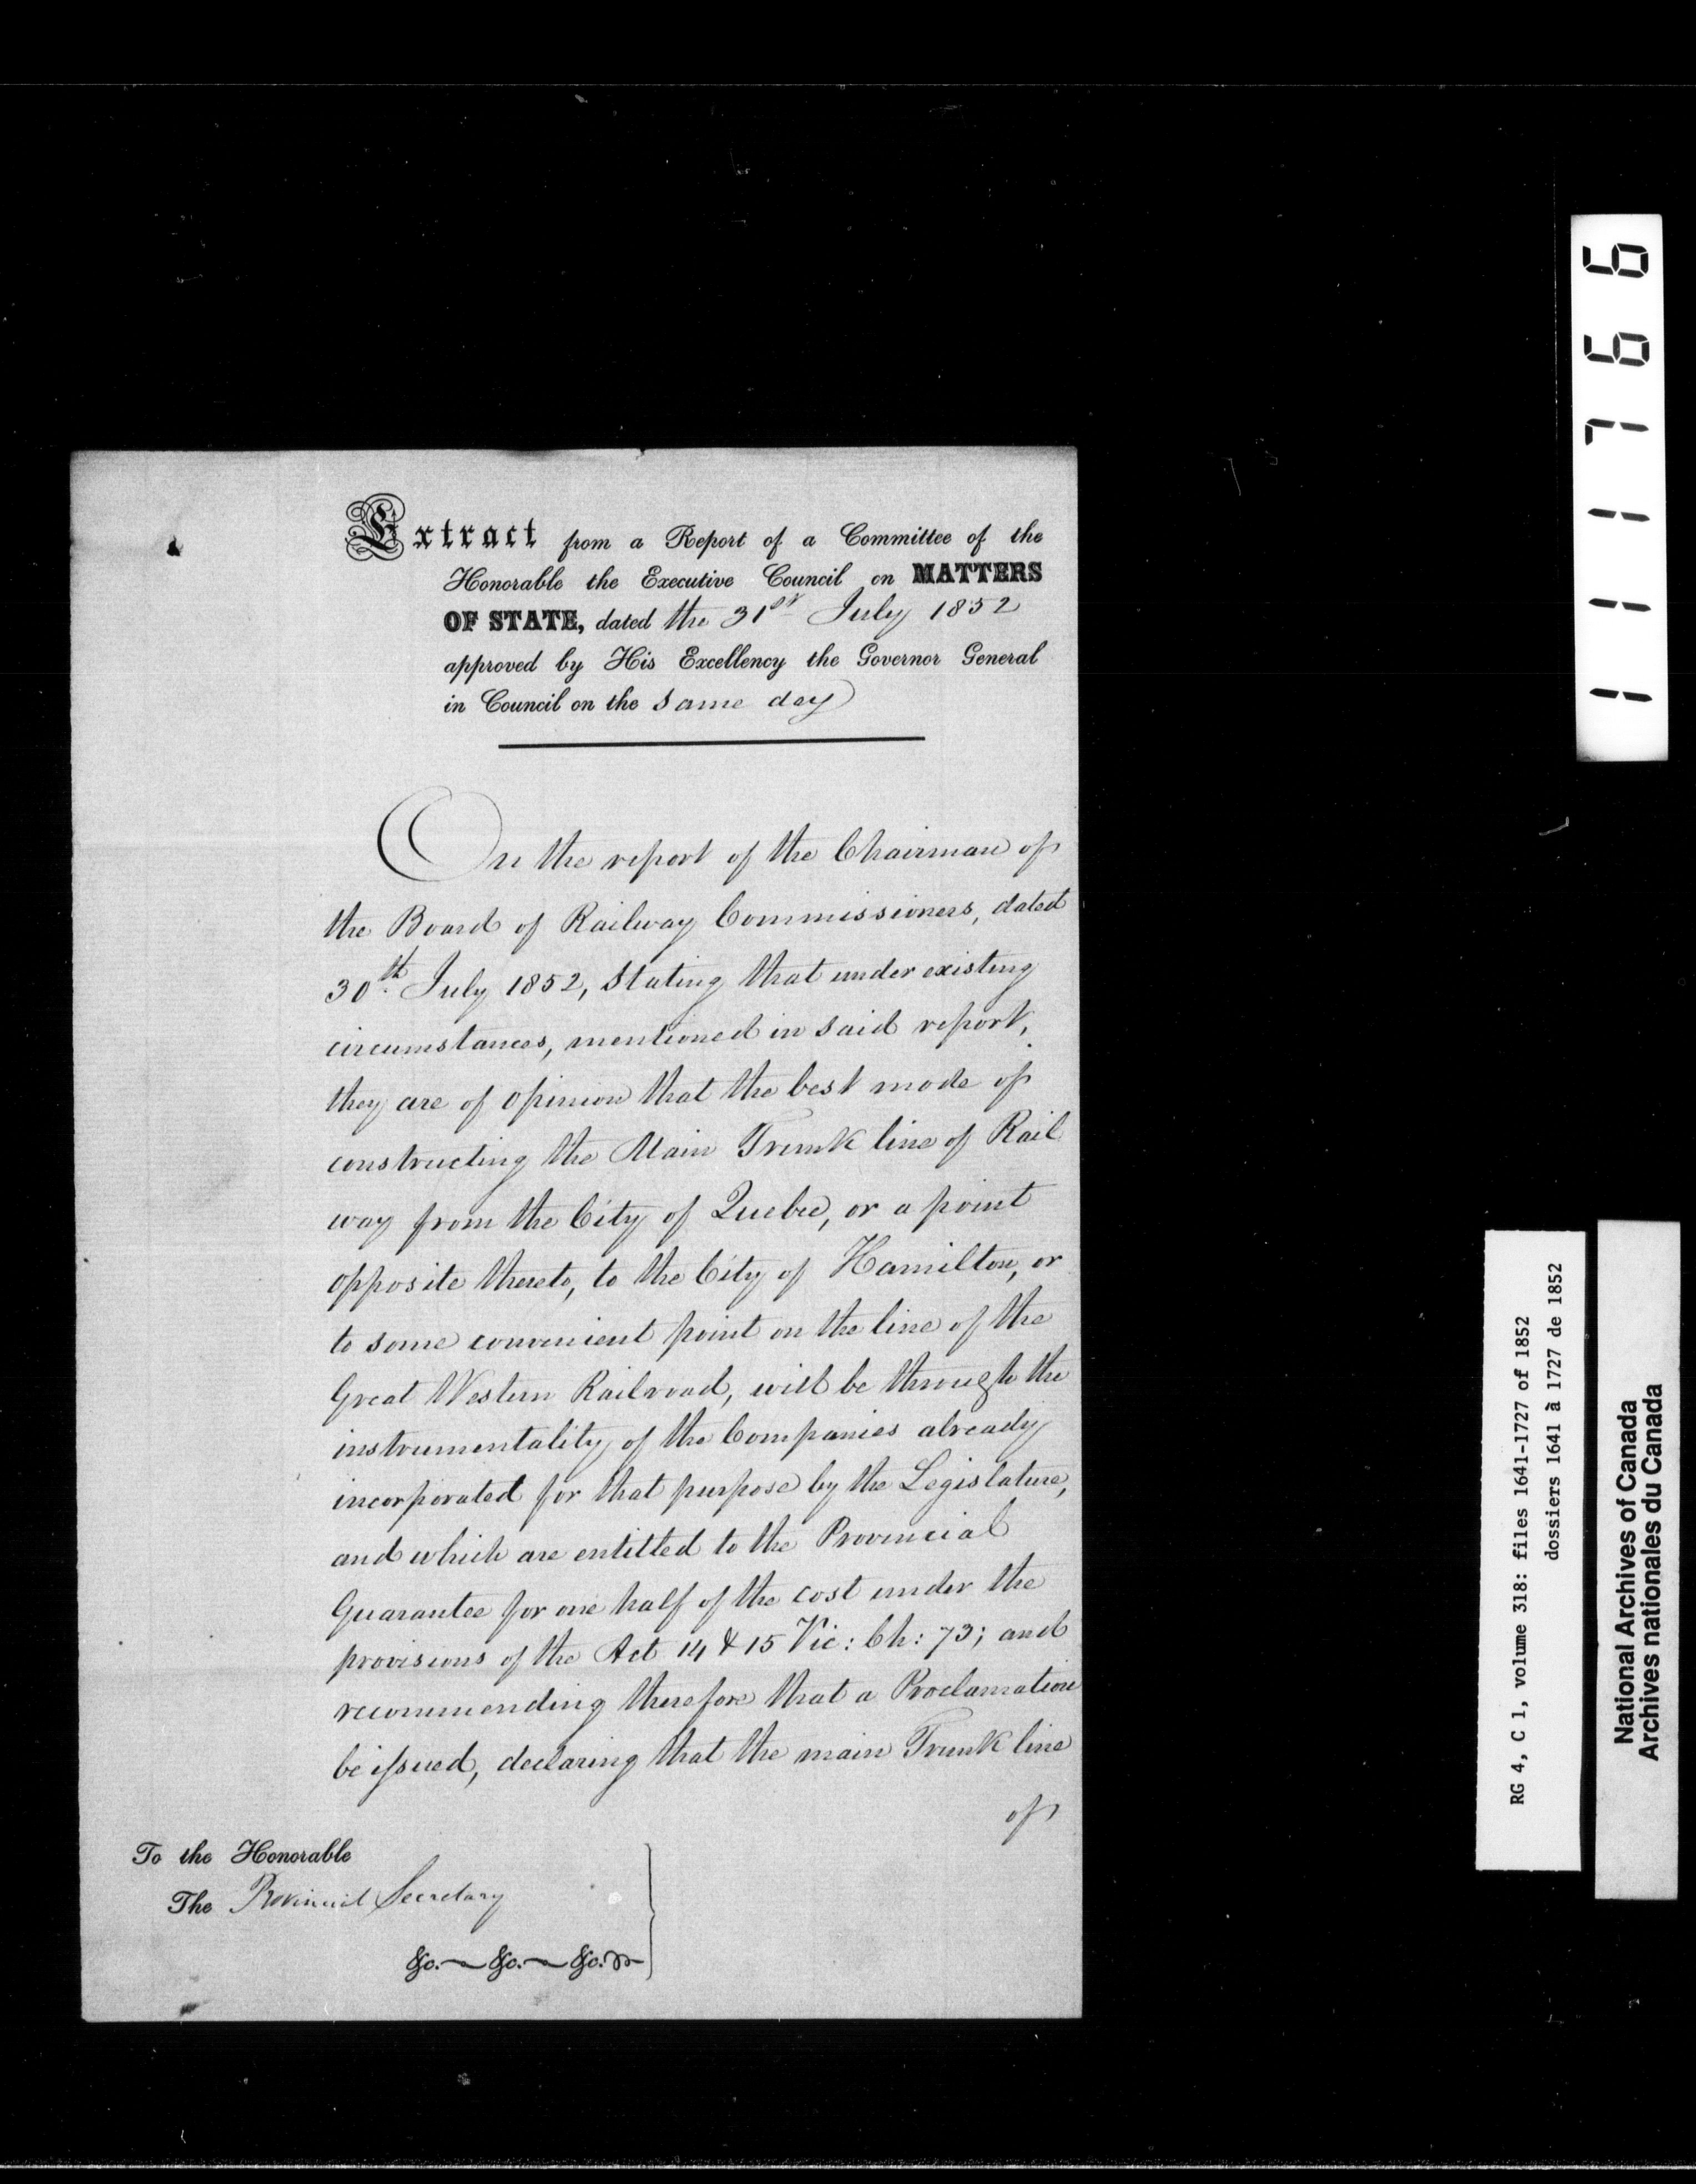 Extract from a Report of a Committee of the
Honorable the Executive Council on MATTERS
OF STATE, dated the 31st July 1852
approved by His Excellency the Governor General
in Council on the same day
On the report of the Chairman of
the Board of Railway Commissioners, dated
30th July 1852, stating that under existing
circumstances, mentioned in said report,
they are of opinion that the best mode of
constructing the Main Trunk line of Rail
way from the City of Quebec, or a point
opposite thereto, to the City of Hamilton, or
to some convenient point on the line of the
Great Western Railroad, will be through the
instrumentality of the Companies already
incorporated for that purpose by the Legislature,
and which are entitled to the Provincial
Guarantee for one half of the cost under the
provisions of the Act 14 & 15 Vic: Ch: 73; and
recommending therefore that a Proclamation
be issued, declaring that the main Trunk line
of
To the Honorable
The Provincial Secretary
&c. &c. &c.
111766
RG 4, C 1, volume 318: files 1641-1727 of 1852
dossiers 1641 à 1727 de 1852
National Archives of Canada
Archives nationales du Canada